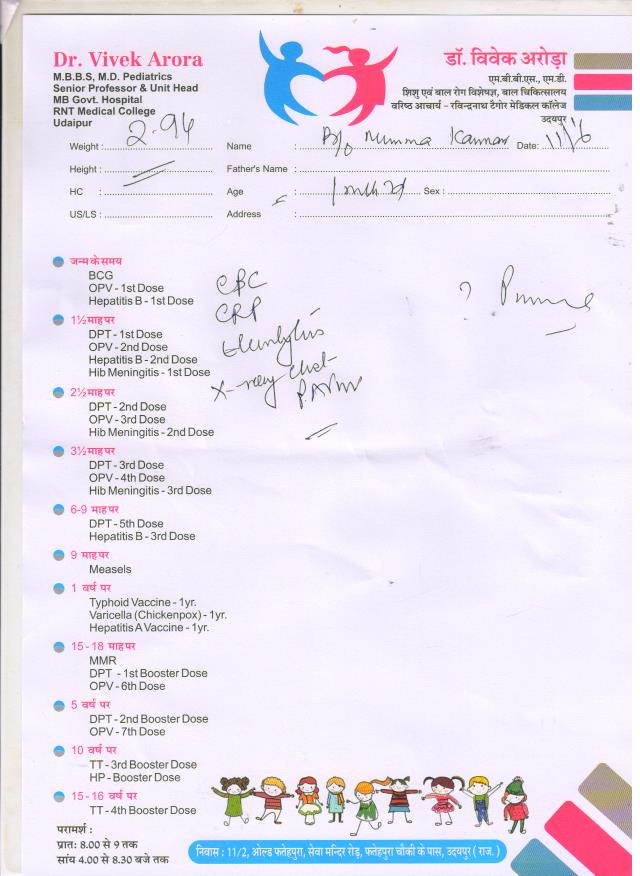 Dr. Vivek Arora
M.B.B.S, M.D. Pediatrics
Senior Professor & Unit Head
MB Govt. Hospital
RNT Medical College
Udaipur
डॉ. विवेक अरोड़ा
एम.बी.बी.एस., एम.डी.
शिशु एवं बाल रोग विशेषज्ञ, बाल चिकित्सालय
वरिष्ठ आचार्य – रविन्द्रनाथ टैगोर मेडिकल कॉलेज
उदयपुर
Weight : 2.94 Name : B/o Date: 11/6
Height : Father's Name :
HC : Age : 1 mth Sex :
US/LS : Address :
जन्म के समय
BCG
OPV - 1st Dose
Hepatitis B - 1st Dose
CBC
CRP
X-ray Chest
1½ माह पर
DPT - 1st Dose
OPV - 2nd Dose
Hepatitis B - 2nd Dose
Hib Meningitis - 1st Dose
2½ माह पर
DPT - 2nd Dose
OPV - 3rd Dose
Hib Meningitis - 2nd Dose
3½ माह पर
DPT - 3rd Dose
OPV - 4th Dose
Hib Meningitis - 3rd Dose
6-9 माह पर
DPT - 5th Dose
Hepatitis B - 3rd Dose
9 माह पर
Measels
1 वर्ष पर
Typhoid Vaccine - 1yr.
Varicella (Chickenpox) - 1yr.
Hepatitis A Vaccine - 1yr.
15-18 माह पर
MMR
DPT - 1st Booster Dose
OPV - 6th Dose
5 वर्ष पर
DPT - 2nd Booster Dose
OPV - 7th Dose
10 वर्ष पर
TT - 3rd Booster Dose
HP - Booster Dose
15-16 वर्ष पर
TT - 4th Booster Dose
परामर्श :
प्रात: 8.00 से 9 तक
सांय 4.00 से 8.30 बजे तक
निवास : 11/2, ओल्ड फतेहपुरा, सेवा मन्दिर रोड़, फतेहपुरा चौकी के पास, उदयपुर ( राज. )